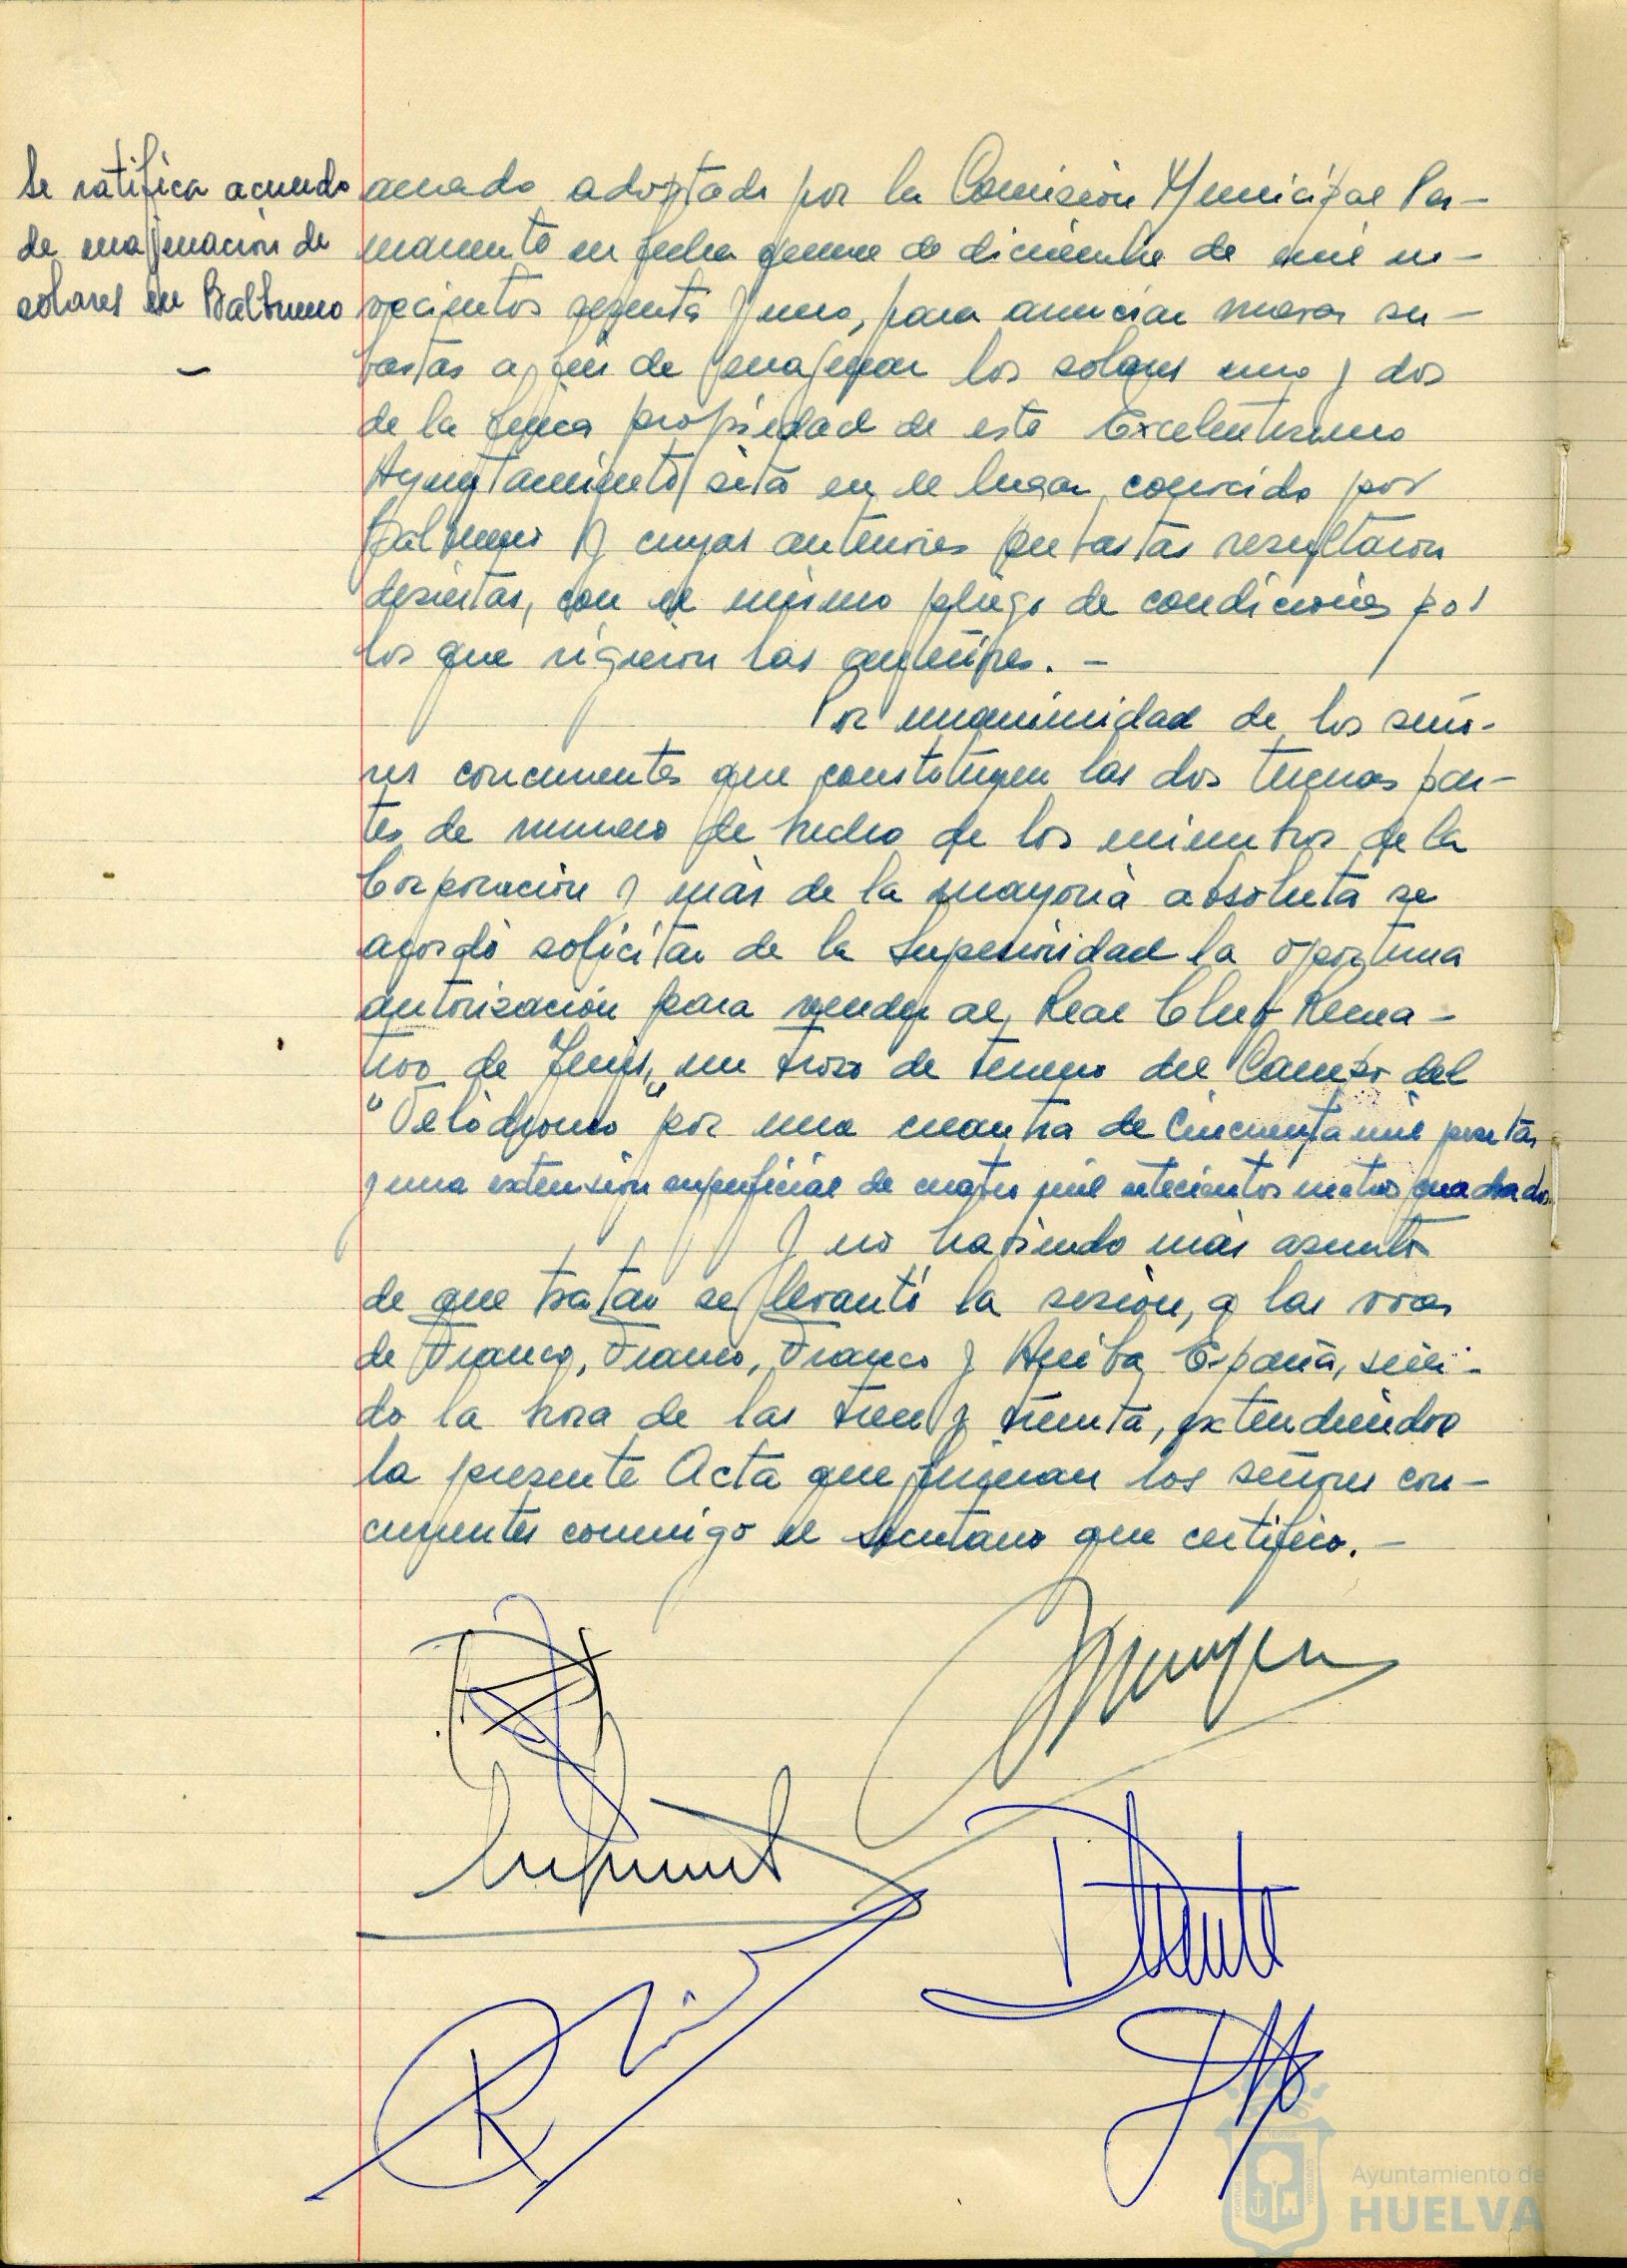 Se ratifica acuerdo
de enajenación de
solares en Balbueno
acuerdo adoptado por la Comisión Municipal Per-
manente en fecha quince de diciembre de mil no-
vecientos sesenta y uno, para anunciar nuevas su-
bastas a fin de enajenar los solares uno y dos
de la finca propiedad de este Excelentísimo
Ayuntamiento sita en el lugar conocido por
Balbueno y cuyas anteriores subastas resultaron
desiertas, con el mismo pliego de condiciones por
los que rigieron las anteriores. -
Por unanimidad de los seño-
res concurrentes que constituyen las dos terceras par-
tes de numero de hecho de los miembros de la
Corporación y más de la mayoría absoluta se
acordó solicitar de la Superioridad la oportuna
autorización para vender al Real Club Recrea-
tivo de Tenis, un trozo de terreno del Campo del
"Velódromo" por una cuantia de Cincuenta mil pesetas
y una extensión superficial de cuatro mil setecientos metros cuadrados.
Y no habiendo más asuntos
de que tratar se levantó la sesión, a las voces
de Franco, Franco, Franco y Arriba España, sien-
do la hora de las trece y treinta, extendiendose
la presente Acta que firman los señores con-
currentes conmigo el Secretario que certifico. -
Ayuntamiento de
HUELVA